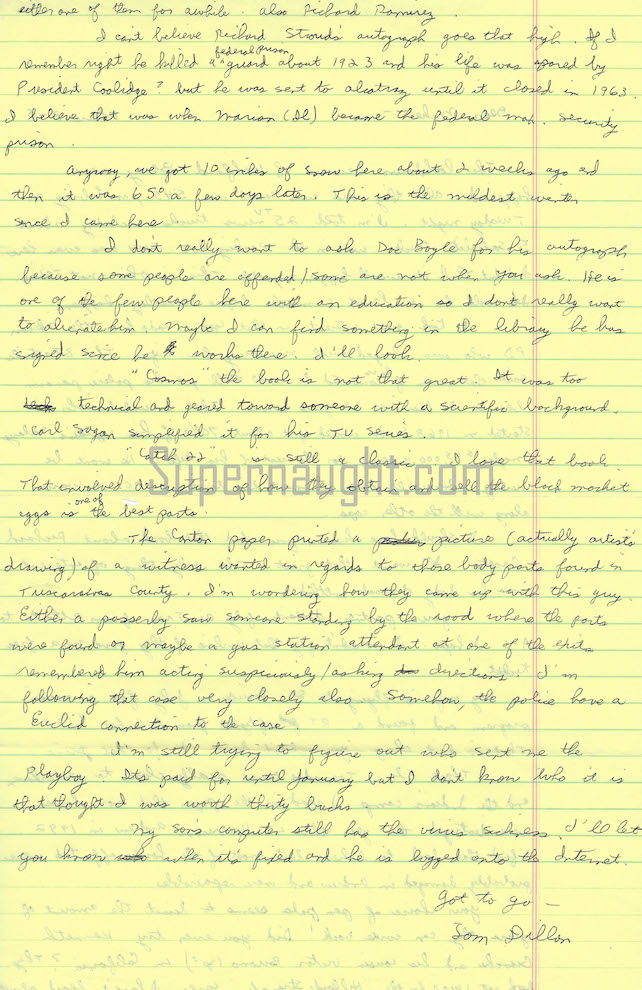 either one of them for awhile. also Richard Ramirez.
I cant believe Richard Strouds autograph goes that high. If I
federal prison
remember right he killed a guard about 1923 and his life was spared by
President Coolidge? but he was sent to alcatraz until it closed in 1963.
I believe that was when Marion (Il) became the federal max. security
prison.
Anyway, we got 10 inches of snow here about 2 weeks ago and
then it was 65° a few days later. This is the mildest winter
since I came here.
I dont really want to ask Doc Boyle for his autograph
because some people are offended/some are not when you ask. He is
one of the few people here with an education so I dont really want
to alienate him. Maybe I can find something in the library he has
signed since he works there. I'll look.
"Cosmos" the book is not that great. It was too
technical and geared toward someone with a scientific background.
Carl Sagan simplified it for his TV series.
"Catch 22 is still a classic. I love that book.
Supernaught.com
That involved description of how they obtain and sell the black market
one of
eggs is the best parts.
The Canton paper printed a picture (actually artist's
drawing) of a witness wanted in regards to those body parts found in
Tuscarawas County. I'm wondering how they came up with this guy.
Either a passerby saw someone standing by the road where the parts
were found or maybe a gas station attendant at one of the exits
remembered him acting suspiciously/asking directions. I'm
following that case very closely also. Somehow, the police have a
Euclid connection to the case.
I'm still trying to figure out who sent me the
Playboy. Its paid for until January but I dont know who it is
that thought I was worth thirty bucks.
My son's computer still has the virus sickness. I'll let
you know when it's fixed and he is logged onto the Internet.
Got to go —
Tom Dillon